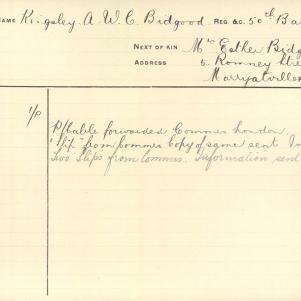 NAME Kingsley. A. W. C. Bidgood. REG. &C. 50th Ba
NEXT OF KIN Mrs Esther Bidg
ADDRESS 5. Romney Stre
Marryatville
1/P P/Cable forwarded Commer London.
"Slip" from Commer Copy of same sent
Two Slips from Commrs. Information sent